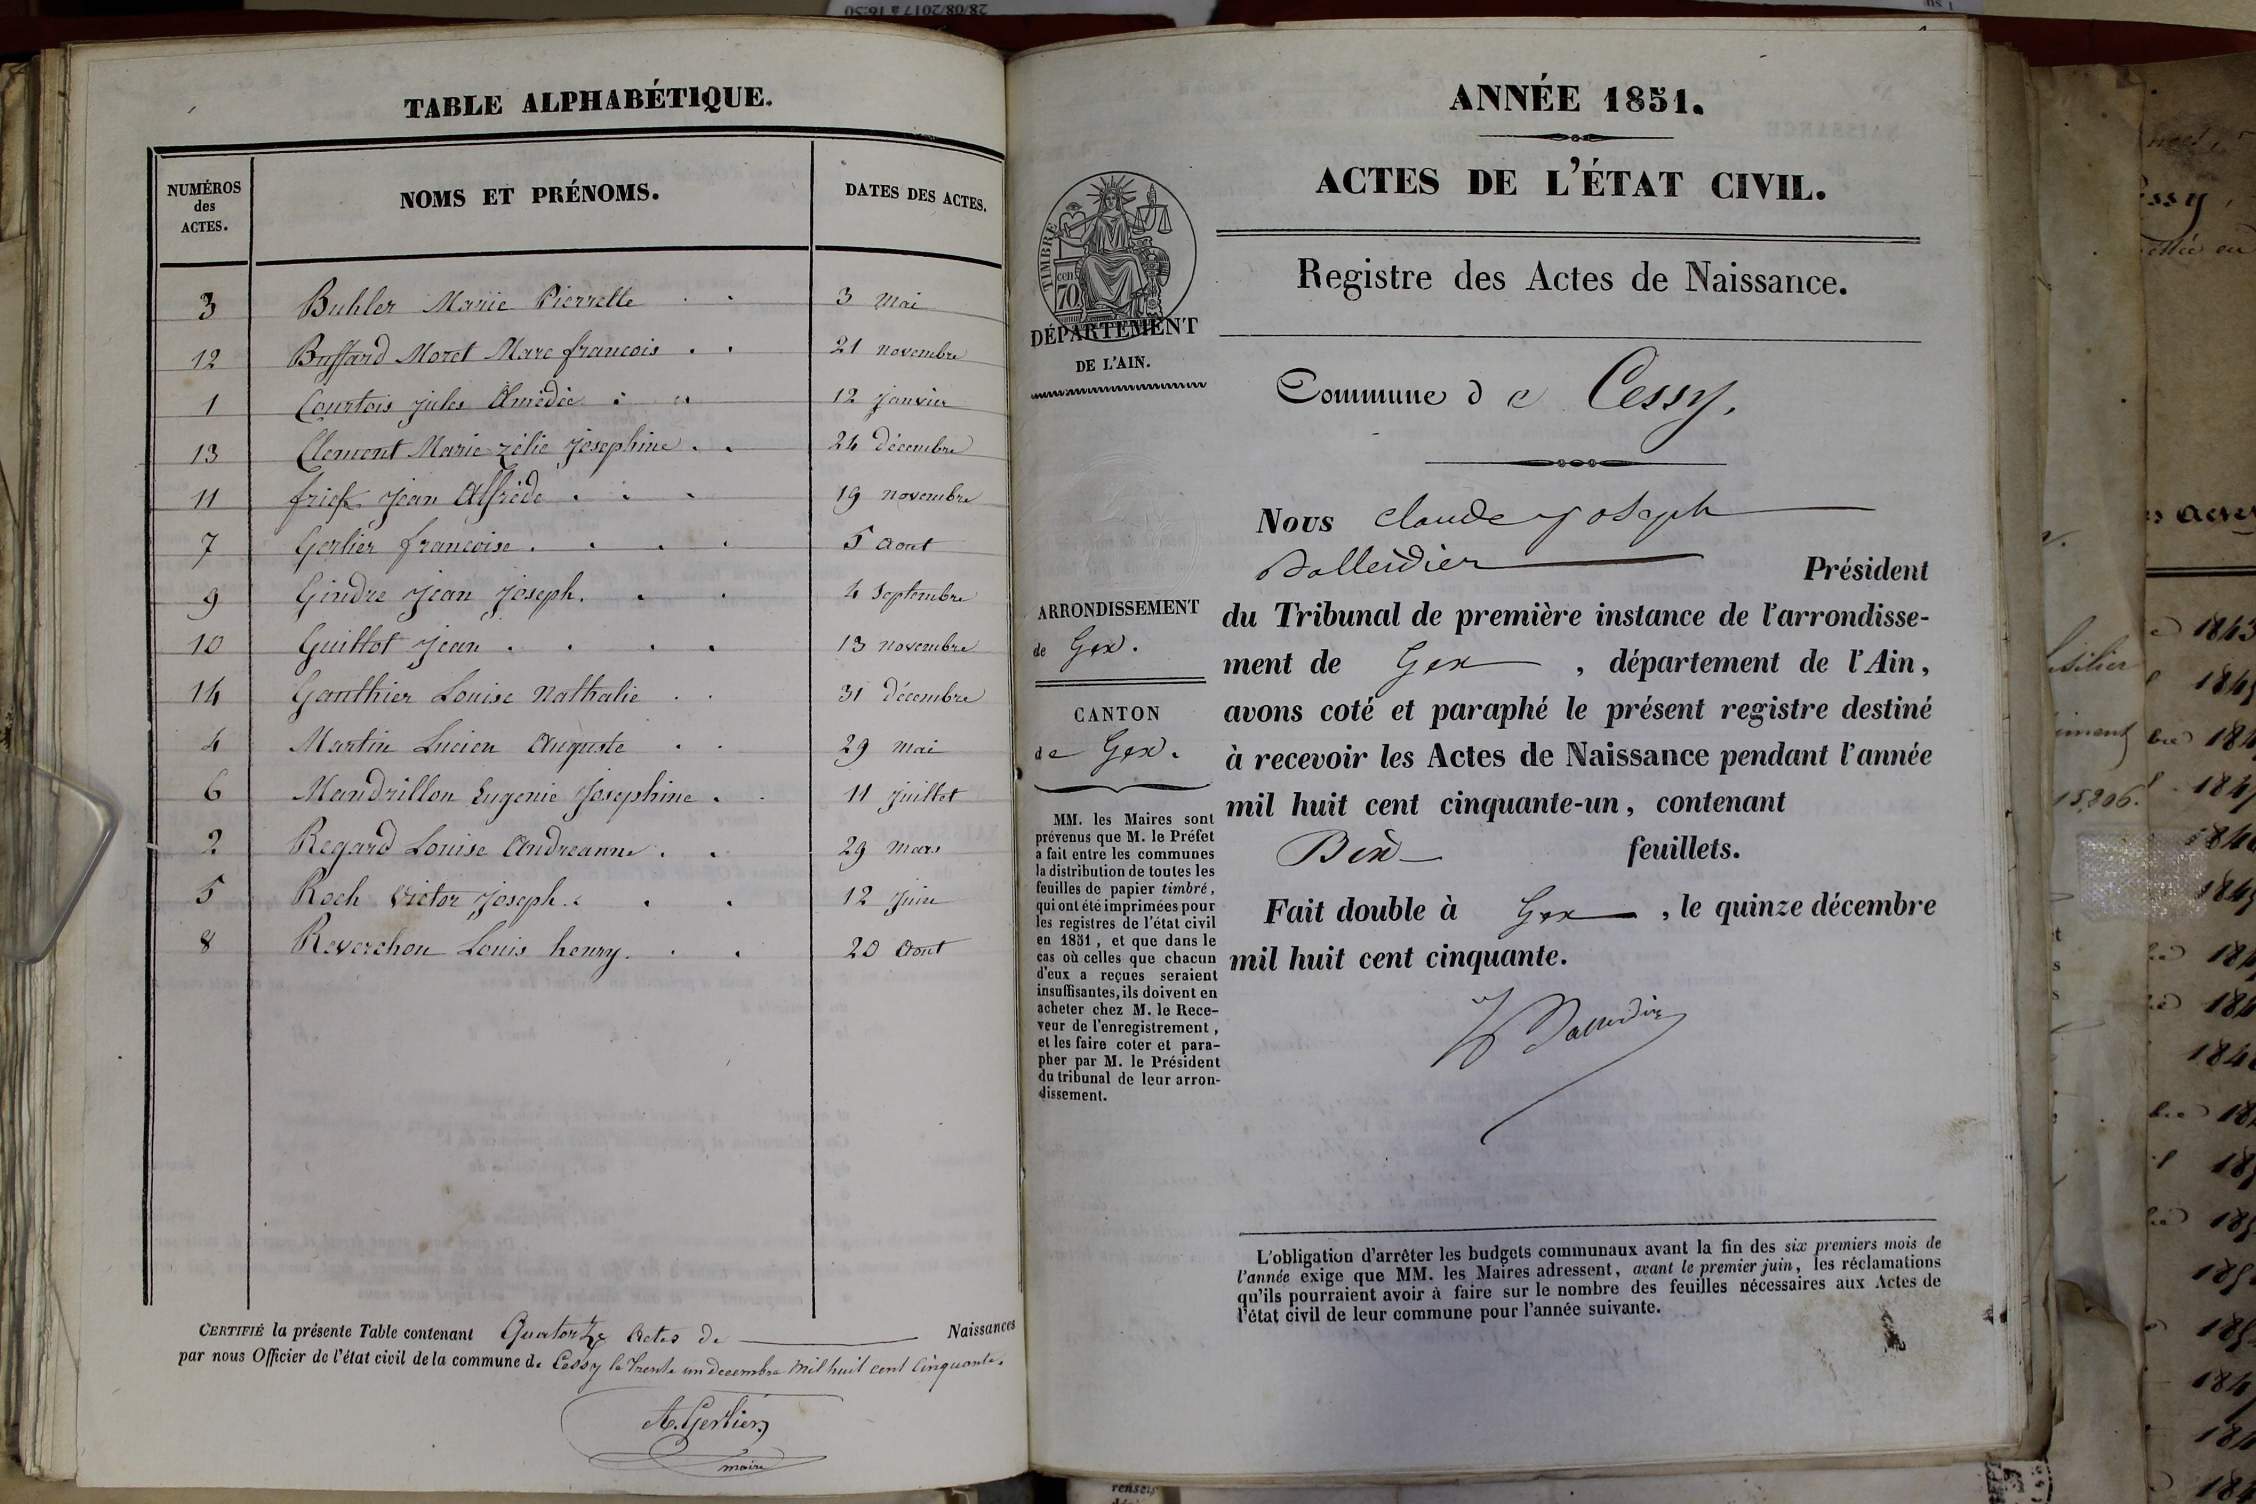 TABLE ALPHABÉTIQUE.
NUMÉROS des ACTES. NOMS ET PRÉNOMS. DATES DES ACTES.
3 Buhler Marie Pierrette 3 mai
12 Buffard Moret Marc francois 21 novembre
1 Courtois Jules Amédée 12 Janvier
13 Clement Marie Zélie Josephine 24 décembre
11 frick Jean Alfrède 19 novembre
7 Gerlier francoise 5 aout
9 Gindre Jean Joseph. 4 Septembre
10 Guillot Jean 13 novembre
14 Gauthier Louise Nathalie 31 décembre
4 Martin Lucien Auguste 29 mai
6 Mandrillon Eugenie Josephine 11 Juillet
2 Regard Louise Andreanne 29 mars
5 Roch Victor Joseph 12 Juin
8 Reverchon Louis henry. 20 Aout
CERTIFIÉ la présente Table contenant Quatorze actes de Naissances
par nous Officier de l'état civil de la commune de Cessy le trente un decembre mil huit cent cinquante.
A. Gerlier
maire
ANNÉE 1851.
ACTES DE L'ÉTAT CIVIL.
Registre des Actes de Naissance.
TIMBRE
cen
70
DÉPARTEMENT
DE L'AIN.
Commune de Cessy.
Nous Claude Joseph
Président
du Tribunal de première instance de l'arrondisse-
ment de Gex, département de l'Ain,
avons coté et paraphé le présent registre destiné
à recevoir les Actes de Naissance pendant l'année
mil huit cent cinquante-un, contenant
feuillets.
Fait double à Gex, le quinze décembre
mil huit cent cinquante.
ARRONDISSEMENT
de Gex.
CANTON
de Gex.
MM. les Maires sont
prévenus que M. le Préfet
a fait entre les communes
la distribution de toutes les
feuilles de papier timbré,
qui ont été imprimées pour
les registres de l'état civil
en 1851, et que dans le
cas où celles que chacun
d'eux a reçues seraient
insuffisantes, ils doivent en
acheter chez M. le Rece-
veur de l'enregistrement,
et les faire coter et para-
pher par M. le Président
du tribunal de leur arron-
dissement.
L'obligation d'arrêter les budgets communaux avant la fin des six premiers mois de
l'année exige que MM. les Maires adressent, avant le premier juin, les réclamations
qu'ils pourraient avoir à faire sur le nombre des feuilles nécessaires aux Actes de
l'état civil de leur commune pour l'année suivante.
28/08/2017 à 16:50